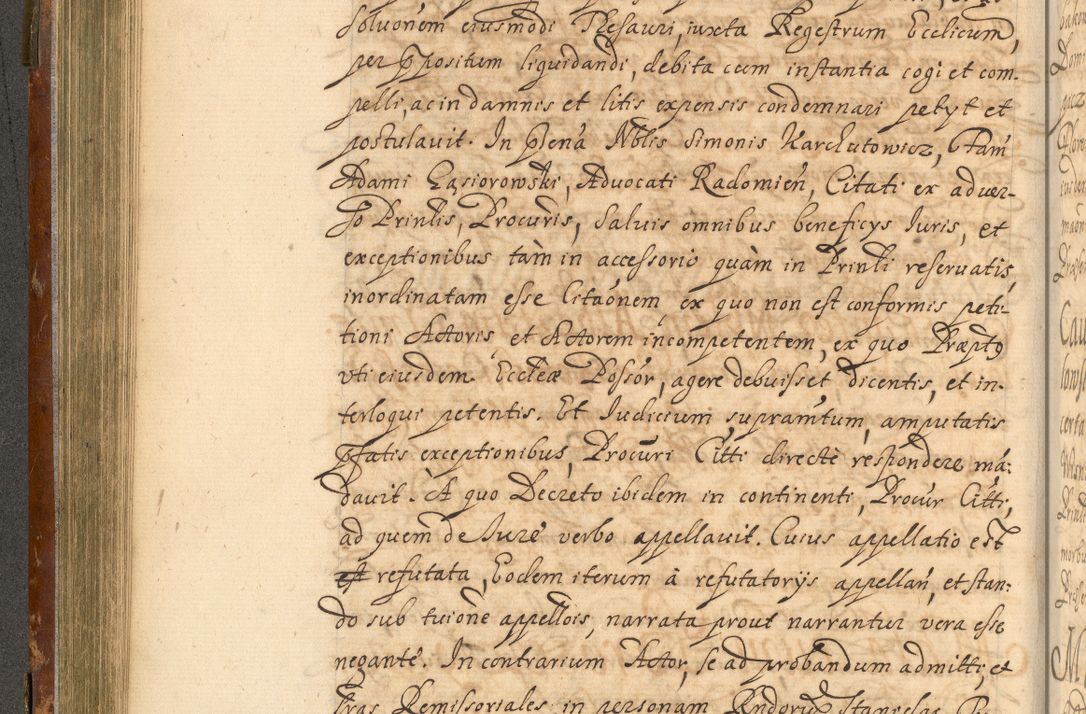 solvonem eiusmodi Thesauri, iuxta Regestrum Ecclicum,
per Ppositum liquidandi, debita cum instantia cogi et com-
pelli, ac in damnis et litis expensis condemnari petyt et
postulavit. In Psena Nblis Simonis Karchutowicz, Fam
Adami Gąsiorowski, Advocati Radomien, Citati ex adver-
so Prinlis, Procuris, Salvis omnibus beneficys Iuris, et
exceptionibus tàm in accessorio quàm in Prinli reservatis,
inordinatam esse Citaonem, ex quo non est conformis peti-
tioni Actoris et Actorem incompetentem, ex quo Præptg
vti eiusdem Eccleæ Possor, agere debuisset dicentis, et in-
terloqui petentis. Et Iudicium supramtum, amputatis
pfatis exceptionibus, Procuri Citti directè respondere má-
davit. A quo Decreto ibidem in continenti, Procur Citti,
ad quem de Iure verbo appellavit. Cuius appellatio est
est refutata, Eodem iterum à refutatorijs appellan, et stan-
do sub tuione appellois, narrata prout narrantur vera esse
negante. In contrarium Actor, se ad probandum admitti, et
Lras Remissoriales in personam Rndorum Stanislai